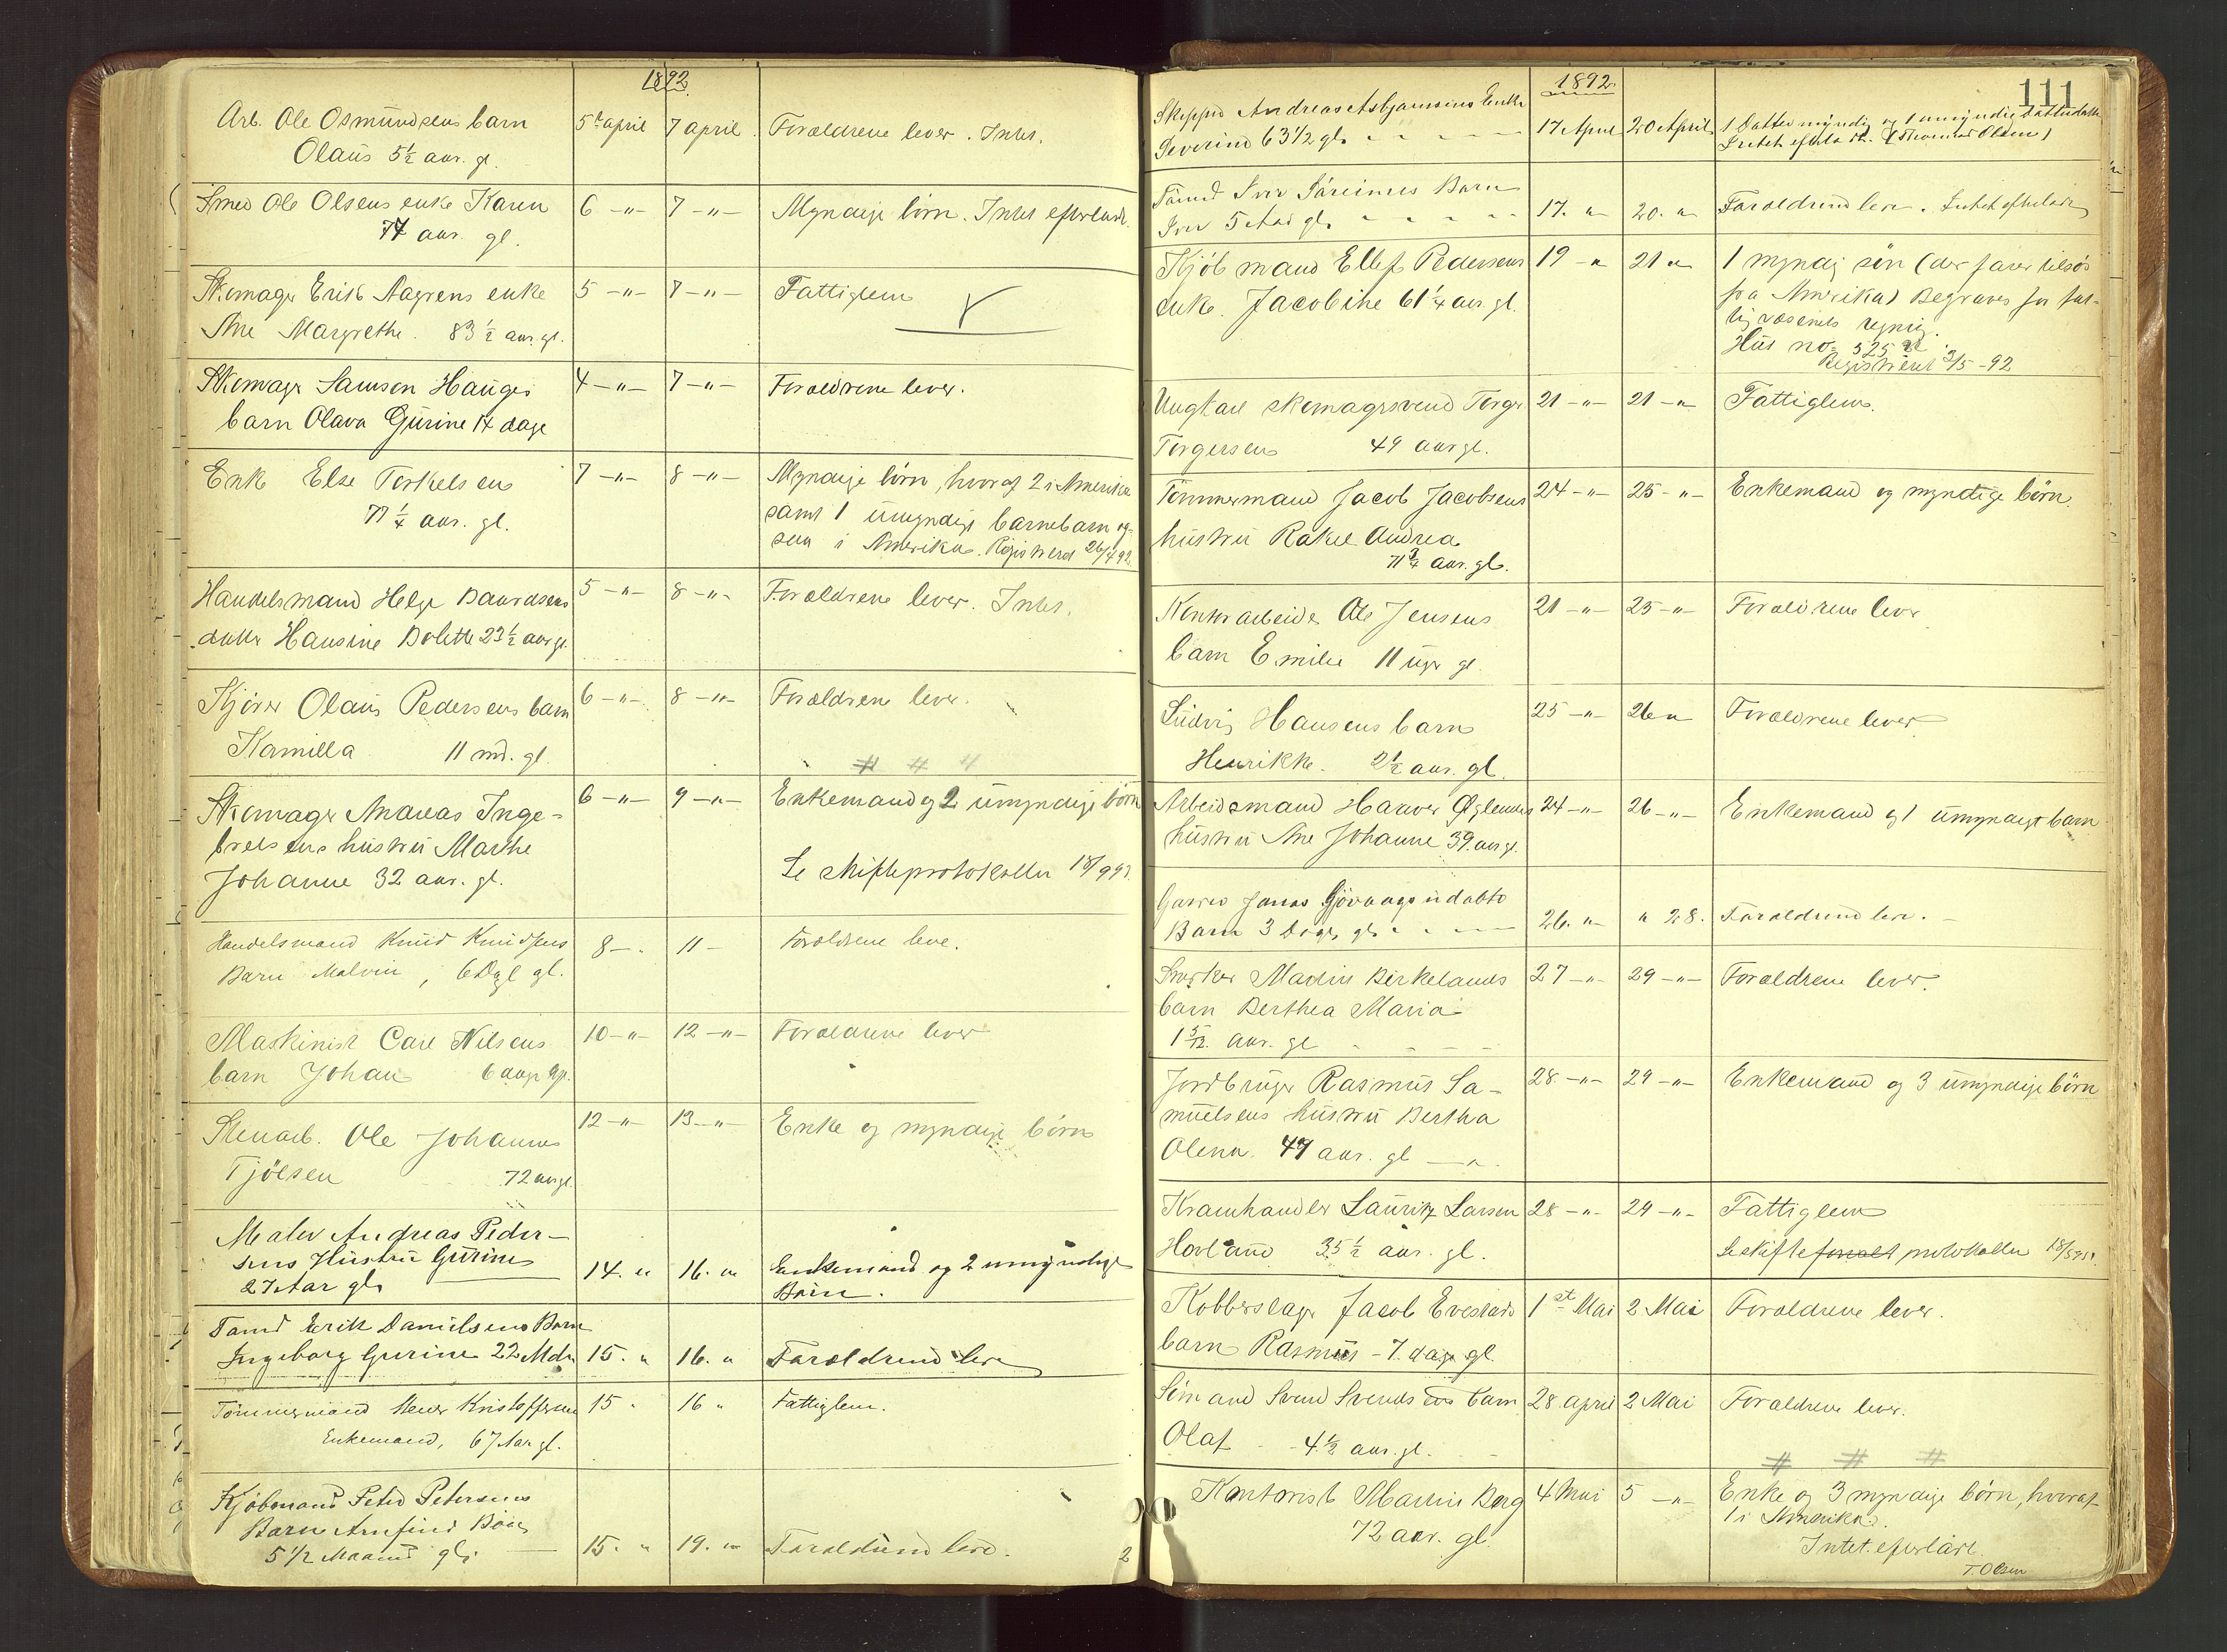 1892.
Arb. Ole Osmundsens barn 5te april 7 april Forældrene lever. Intet.
Olaus 5½ aar. gl.
Smed Ole Olsens enke Karen 6 -"- 7 -"- Myndige börn. Intet efterladt.
77 aar. gl.
Skomager Erik Aagrens enke 5 -"- 7 -"- Fattiglem
Ane Margrethe. 83½ aar. gl.
Skomager Samson Hauges 4 -"- 7 -"- Forældrene lever.
barn Olava Gurine 14 dage
Enke Else Torkelsens 7 -"- 8 -"- Myndige börn, hvoraf 2 i Amerika
77¼ aar. gl. samt 1 umyndigt barnebarn og-
saa i Amerika. Registreret 26/4 92.
Handelsmand Helge Baardsens 5 -"- 8 -"- Forældrene lever. Intet.
datter Hansine Bolette 23½ aar gl.
Kjører Olaus Pedersens barn 6 -"- 8 -"- Forældrene lever.
Kamilla 11 md. gl.
# # #
Skomager Andreas Inge- 6 -"- 9 -"- Enkemand og 2 umyndige börn
bretsens hustru Marthe
Johanne 32 aar. gl. Se skifteprotokollen 18/9 92.
Handelsmand Knud Knudsens 8 - 11 - Forældrene leve.
Barn Malvin, 6 Dg gl.
Maskinist Carl Nilsens 10 -"- 12 -"- Forældrene lever
barn Johan 6 aar gl.
Stenarb. Ole Johannes 12 -"- 13 -"- Enke og myndige börn
Tjölsen 72 aar gl.
Maler Andreas Peder-
sens Hustru Gurine 14. " 16. " Enkemand og 2 umyndige
27 Aar gl. Börn.
Tømd Erik Danielsens Barn
Ingeborg Gurine 22 Mdr 15. " 16. " Forældrene leve
Tömmermand Kristoffersen 15 " 16 " Fattiglem.
Enkemand, 67 Aar gl.
Kjöbmand Peter Petersens
Barn Arnfind
5 1/2 Maaned gl. 15. " 19. " Forældrene leve.
2
1892.
111
Skipper Andreas Asbjørnsens Enke
Severine 63 1/2 gl. 17 April 20 April 1 Datter myndig og 1 umyndig Datterdatter
Intet efterladt. (Thomas Olsen)
Tømd Iver Barn
Iver 5 Aar gl. 17. " 20. " Forældrene leve. Intet efterladt
Kjöbmand Ellef Pedersens 19 -" 21 " 1 myndig sön (der farer tilsös
enke. Jacobine 61¼ aar. gl. fra Amerika) Begraves for fat-
tigvæsenets regnig.
Hus no 525
Registreret 3/5 -92
Ungkarl skomagersvend Torger 21 -"- 21 -"- Fattiglem.
Torgersen 49 aar gl.
Tömmermand Jacob Jacobsens 24 -"- 25 -"- Enkemand og myndige börn.
hustru Rakel Andrea
71¾ aar. gl.
Kontorarbeider Ole Jensens 21 -"- 25 -"- Forældrene lever
barn Emilie 11 uger gl.
Ludvig Hansens barn 25 -"- 26 " Forældrene lever
Henrikke. 2½ aar. gl.
Arbeidsmand Haaver Øglendes 24 -"- 26 -"- Enkemand og 1 umyndigt barn
hustru Ane Johanne 39 aar gl.
Garver Jonas Gjövaags udøbte
Barn 3 Dage gl. 26. " " 28. Forældrene leve.
Snedker Martin Birkelands 27 -"- 29 -"- Forældrene lever.
barn Berthea Maria
1 5/12 aar. gl
Jordbruger Rasmus Sa- 28 -"- 29 -"- Enkemand og 3 umyndige börn
muelsens hustru Bertha
Olena. 47 aar. gl
Kramhandler Lauritz Larsen 28 -"- 29 -"- Fattiglem
Hovland 35½ aar. gl. Se skifteprotokollen 18/5 92.
Kobberslager Jacob Evestads 1st Mai 2 Mai Forældrene lever.
barn Rasmus - 7. dage gl.
Sömand Svend Svendsens barn 28 april 2 Mai Forældrene lever.
Olaf - 4½ aar. gl.
# # #
Kontorist Martin Berg 4 Mai 5 -"- Enke og 3 myndige börn, hvoraf
72 aar. gl. 1 i Amerika.
Intet efterladt
T. Olsen